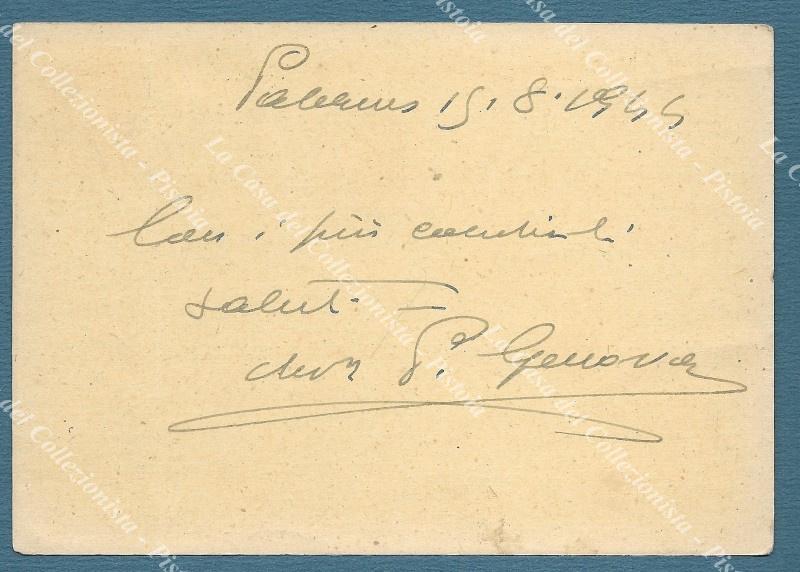 Palermo 15.8.1944
Con i più cordiali
saluti
P. Genova
La Casa del Collezionista - Pistoia